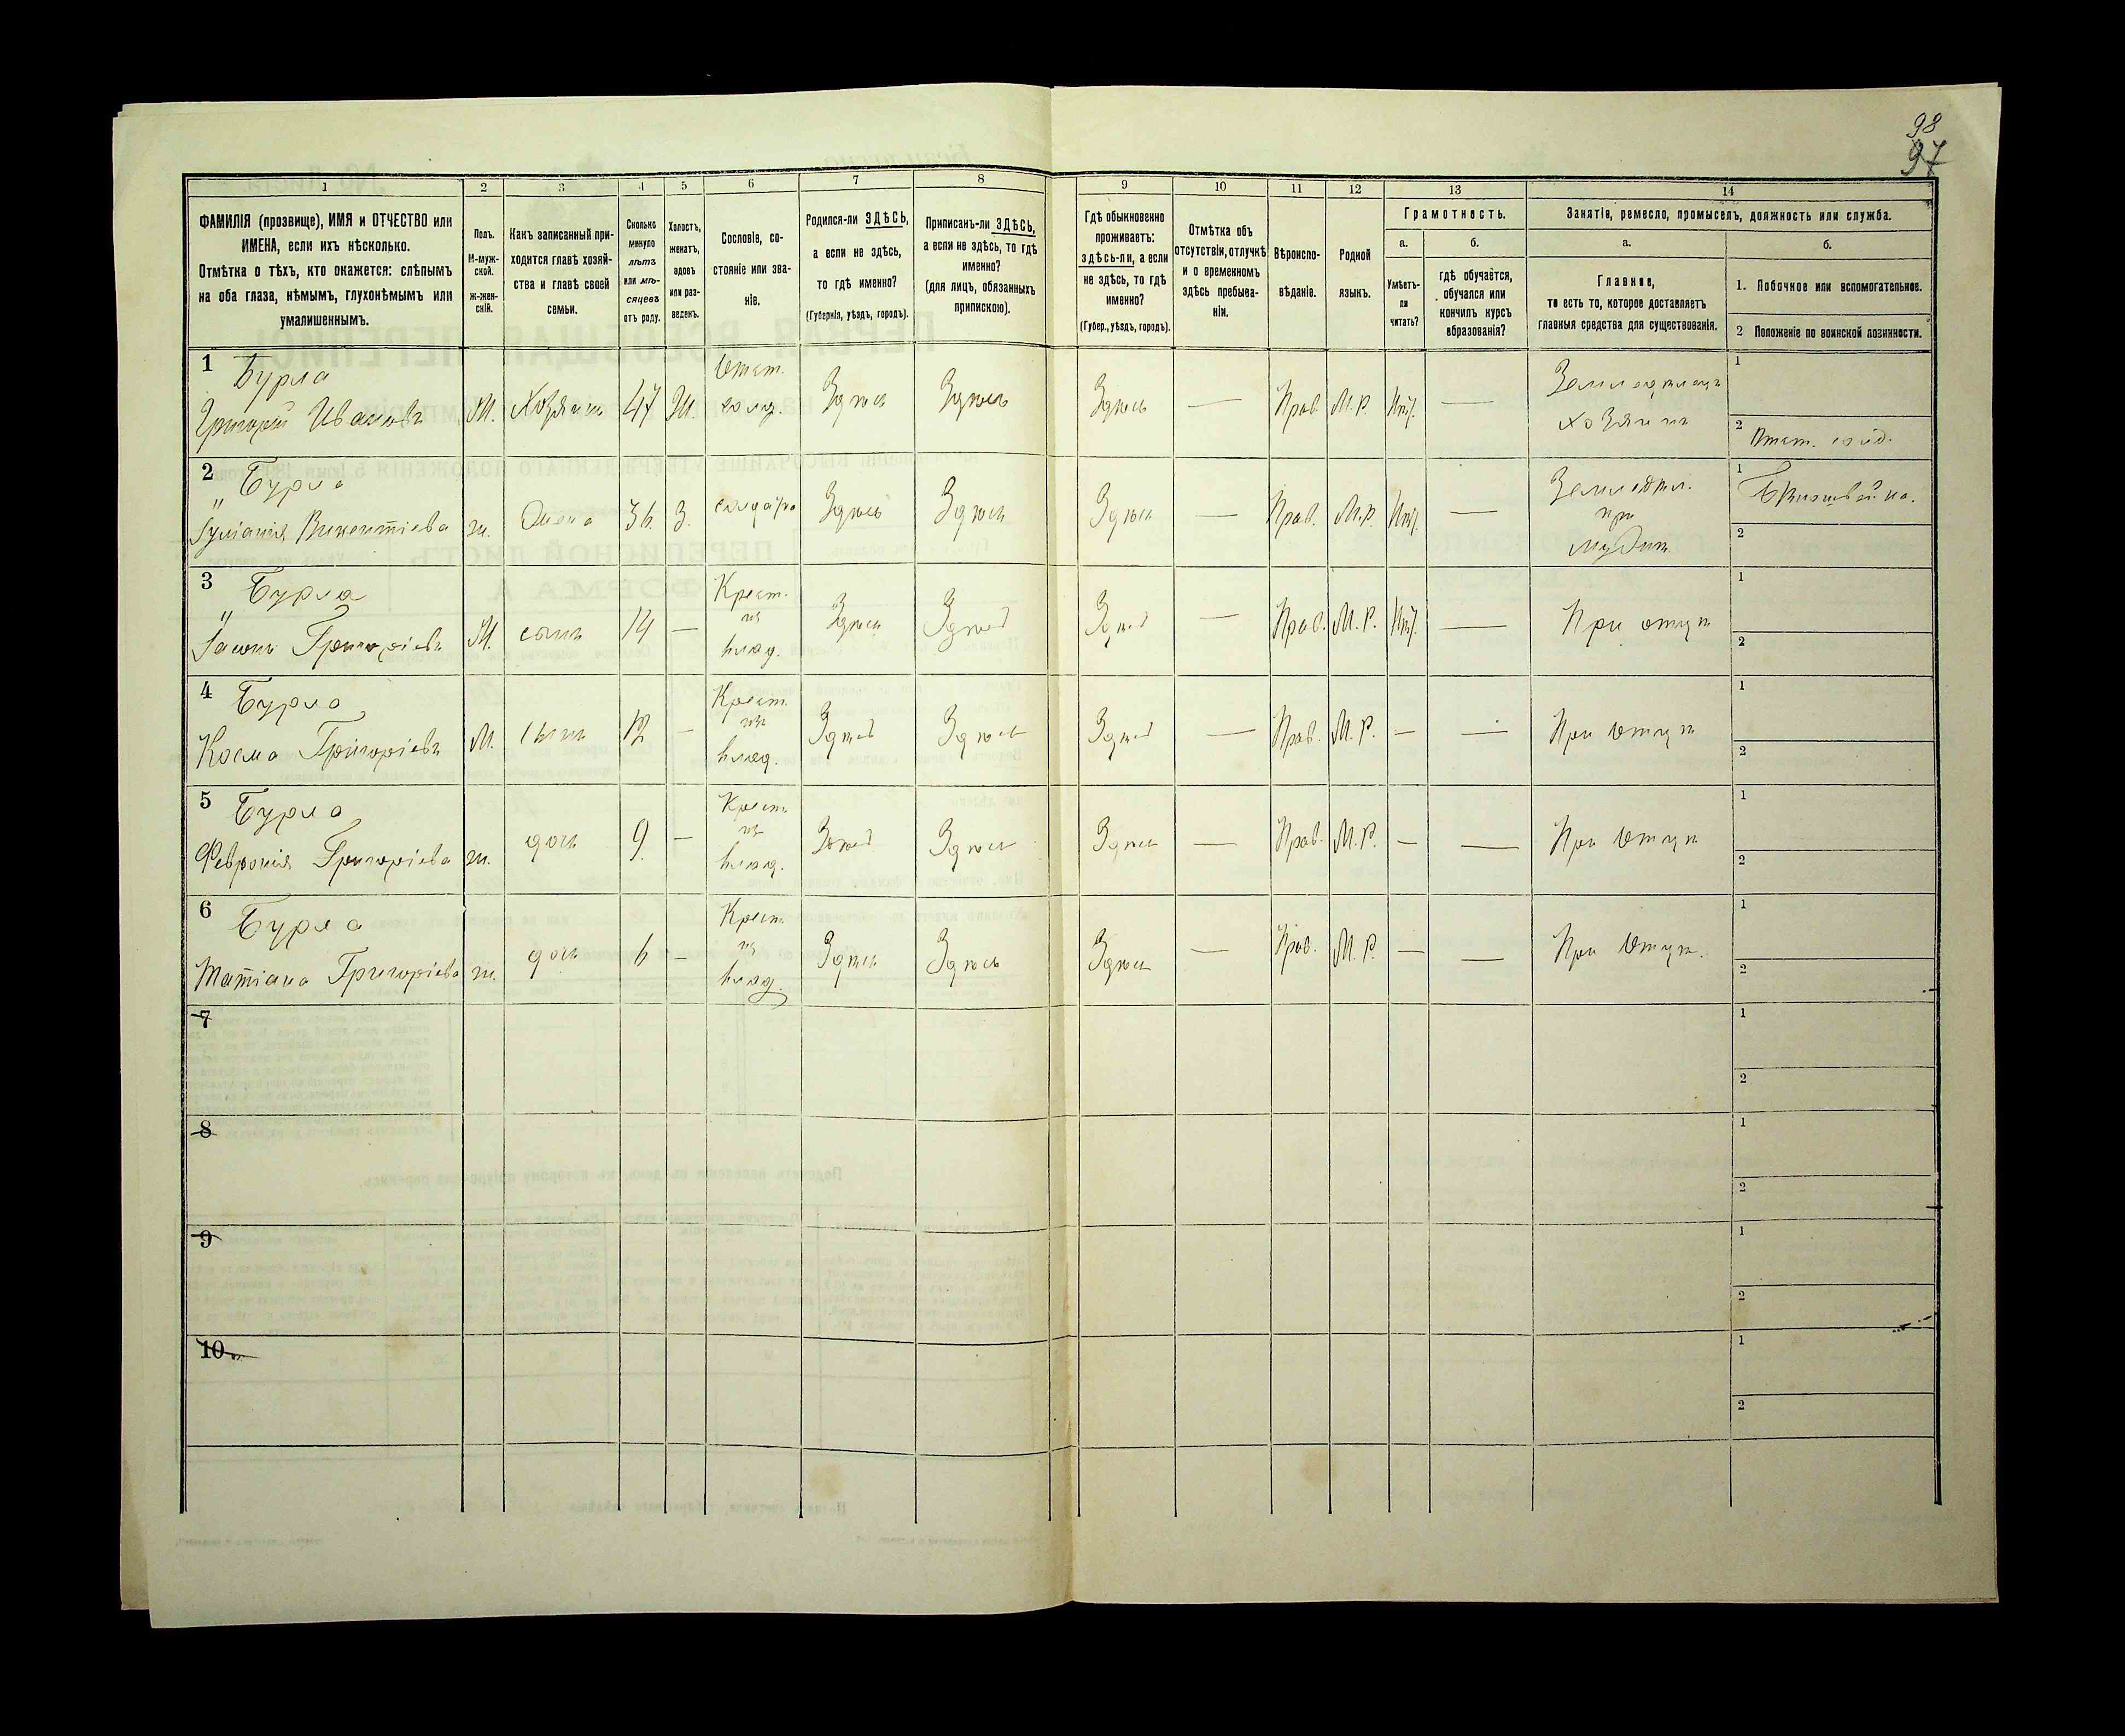 98
97
1 2 3 4 5 6 7 8 9 10 11 12 13 14
ФАМИЛІЯ (прозвище), ИМЯ и ОТЧЕСТВО или
ИМЕНА, если ихъ нѣсколько.
Отмѣтка о тѣхъ, кто окажется: слѣпымъ
на оба глаза, нѣмымъ, глухонѣмымъ или
умалишеннымъ.
Полъ.
М-муж-
ской.
Ж-жен-
скій.
Какъ записанный при-
ходится главѣ хозяй-
ства и главѣ своей
семьи.
Сколько
минуло
лѣтъ
или мѣ-
сяцевъ
отъ роду.
Холостъ,
женатъ,
вдовъ
или раз-
веденъ.
Сословіе, со-
стояніе или зва-
ніе.
Родился-ли ЗДѢСЬ,
а если не здѣсь,
то гдѣ именно?
(Губернія, уѣздъ, городъ).
Приписанъ-ли ЗДѢСЬ,
а если не здѣсь, то гдѣ
именно?
(для лицъ, обязанныхъ
припискою).
Гдѣ обыкновенно
проживаетъ:
здѣсь-ли, а если
не здѣсь, то гдѣ
именно?
(Губер., уѣздъ, городъ).
Отмѣтка объ
отсутствіи, отлучкѣ
и о временномъ
здѣсь пребыва-
ніи.
Вѣроиспо-
вѣданіе.
Родной
языкъ.
Грамотность.
а.
Умѣетъ-
ли
читать?
б.
гдѣ обучается,
обучался или
кончилъ курсъ
образованія?
Занятія, ремесло, промыселъ, должность или служба.
а.
Главное,
то есть то, которое доставляетъ
главныя средства для существованія.
б.
1. Побочное или вспомогательное.
2 Положеніе по воинской повинности.
1 Бурла
Григорій Ивановъ М. Хозяинъ 47 Ж. Отст. солд. Здѣсь Здѣсь Здѣсь — Прав. М.р. Нѣт. — Земледѣлецъ хозяинъ 1
2 Отст. солд.
2 Бурла
Викентіева ж. Жена 36 З. солдатка Здѣсь Здѣсь Здѣсь — Прав. М.р. Нѣт. — Земледѣл. при 1
2
3 Бурла
Григоріевъ М. сынъ 14 — Крест. изъ влад. Здѣсь Здѣсь Здѣсь — Прав. М.р. Нѣт. — При отцѣ 1
2
4 Бурла
Косма Григоріевъ М. сынъ 12 — Крест. изъ влад. Здѣсь Здѣсь Здѣсь — Прав. М.р. — — При отцѣ 1
2
5 Бурла
Февронія Григоріева ж. дочь 9 — Крест. изъ влад. Здѣсь Здѣсь Здѣсь — Прав. М.р. — — При отцѣ 1
2
6 Бурла
Татіана Григоріева ж. дочь 6 — Крест. изъ влад. Здѣсь Здѣсь Здѣсь — Прав. М.р. — — При отцѣ. 1
2
7 1
2
8 1
2
9 1
2
10 1
2